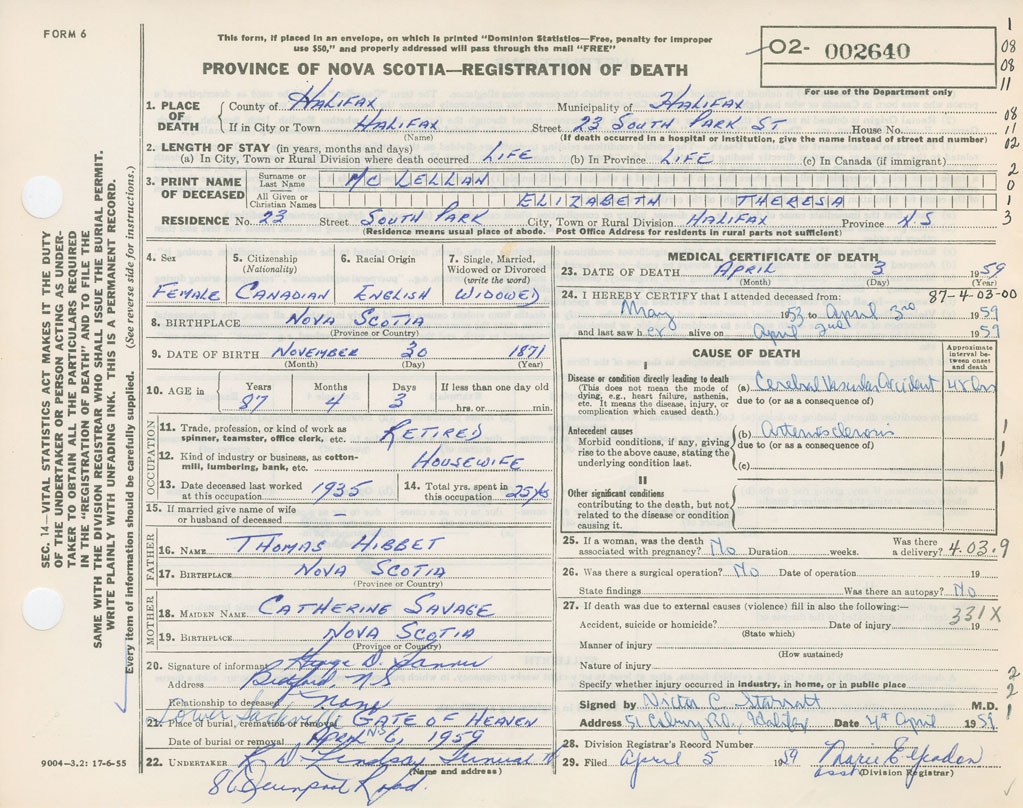 FORM 6
This form, if placed in an envelope, on which is printed "Dominion Statistics—Free, penalty for improper
use $50," and properly addressed will pass through the mail "FREE"
O2- 002640
For use of the Department only
PROVINCE OF NOVA SCOTIA—REGISTRATION OF DEATH
1. PLACE OF DEATH
County of Halifax Municipality of Halifax
If in City or Town Halifax Street 23 South Park St House No.
(Name) (If death occurred in a hospital or institution, give the name instead of street and number)
2. LENGTH OF STAY (in years, months and days)
(a) In City, Town or Rural Division where death occurred Life (b) In Province Life (c) In Canada (if immigrant)
3. PRINT NAME OF DECEASED
Surname or Last Name McLellan
All Given or Christian Names Elizabeth Theresa
RESIDENCE No. 23 Street South Park City, Town or Rural Division Halifax Province N.S
(Residence means usual place of abode. Post Office Address for residents in rural parts not sufficient)
4. Sex
Female
5. Citizenship
(Nationality)
Canadian
6. Racial Origin
English
7. Single, Married,
Widowed or Divorced
(write the word)
Widowed
8. BIRTHPLACE Nova Scotia
(Province or Country)
9. DATE OF BIRTH November 30 1871
(Month) (Day) (Year)
10. AGE in
Years Months Days If less than one day old
87 4 3 hrs. or min.
OCCUPATION
11. Trade, profession, or kind of work as
spinner, teamster, office clerk, etc. Retired
12. Kind of industry or business, as cotton-
mill, lumbering, bank, etc. Housewife
13. Date deceased last worked
at this occupation 1935
14. Total yrs. spent in
this occupation 25 yrs
15. If married give name of wife
or husband of deceased –
FATHER
16. NAME Thomas Hibbet
17. BIRTHPLACE Nova Scotia
(Province or Country)
MOTHER
18. MAIDEN NAME Catherine Savage
19. BIRTHPLACE Nova Scotia
(Province or Country)
20. Signature of informant George D.
Address Bedford, N.S
Relationship to deceased none
Lower Sackville NS
21. Place of burial, cremation or removal Gate of Heaven
Date of burial or removal April 6, 1959
22. UNDERTAKER Lindsay Funeral H
(Name and address)
Road
9004—3.2: 17-6-55
MEDICAL CERTIFICATE OF DEATH
23. DATE OF DEATH April 3 1959
(Month) (Day) (Year)
24. I HEREBY CERTIFY that I attended deceased from: 87-4-03-00
May 1953 to April 3rd 1959
and last saw her alive on April 2nd 1959
CAUSE OF DEATH
Approximate
interval be-
tween onset
and death
I
Disease or condition directly leading to death
(This does not mean the mode of
dying, e.g., heart failure, asthenia,
etc. It means the disease, injury, or
complication which caused death.)
(a) Cerebral Vascular Accident 48 hrs
due to (or as a consequence of)
Antecedent causes
Morbid conditions, if any, giving
rise to the above cause, stating the
underlying condition last.
(b) Arteriosclerosis
due to (or as a consequence of)
(c)
II
Other significant conditions
contributing to the death, but not
related to the disease or condition
causing it.
25. If a woman, was the death
associated with pregnancy? No Duration weeks. Was there
a delivery? 4.03.9
26. Was there a surgical operation? No Date of operation 19
State findings Was there an autopsy? No
27. If death was due to external causes (violence) fill in also the following:—
331X
Accident, suicide or homicide? Date of injury 19
(State which)
Manner of injury
(How sustained)
Nature of injury
Specify whether injury occurred in industry, in home, or in public place
Signed by Victor C. M.D.
Address 51 Coburg Rd., Halifax Date 4th April 1959
28. Division Registrar's Record Number
29. Filed April 5 1959 Marie E
Asst (Division Registrar)
SEC. 14—VITAL STATISTICS ACT MAKES IT THE DUTY
OF THE UNDERTAKER OR PERSON ACTING AS UNDER-
TAKER TO OBTAIN ALL THE PARTICULARS REQUIRED
IN THE "REGISTRATION OF DEATH" AND TO FILE THE
SAME WITH THE DIVISION REGISTRAR WHO SHALL ISSUE THE BURIAL PERMIT.
WRITE PLAINLY WITH UNFADING INK. THIS IS A PERMANENT RECORD.
Every item of information should be carefully supplied. (See reverse side for instructions.)
1
08
08
11
08
11
02
2
0
1
3
1
1
1
2
2
1